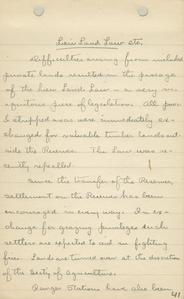 Lieu Land Law etc.
Difficulties arising from included
private lands resulted in the passage
of the Lieu Land Law - a very in-
iquitous piece of legislation. All poor
& stripped areas were immediately ex-
changed for valuable timber lands out-
side the Reserves. The Law was re-
cently repealed.
Since the transfer of the Reserves,
settlement on the Reserves has been
encouraged in every way. In ex-
change for grazing privileges such
settlers are expected to aid in fighting
fires. Lands are turned over at the discretion
of the Secty of Agriculture.
Ranger Stations have also been